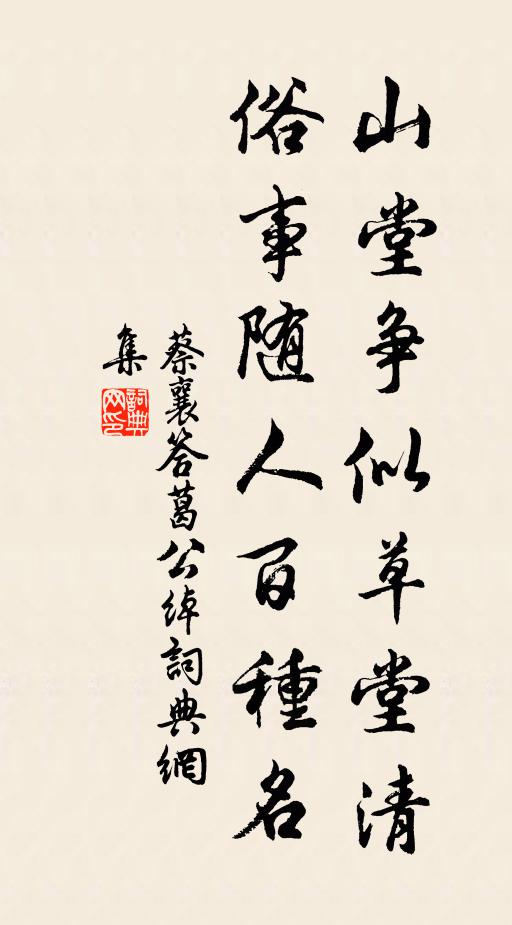 山堂争似草堂清
俗事随人百種名
蔡襄答葛公綽詞典網
集
詞典
网印